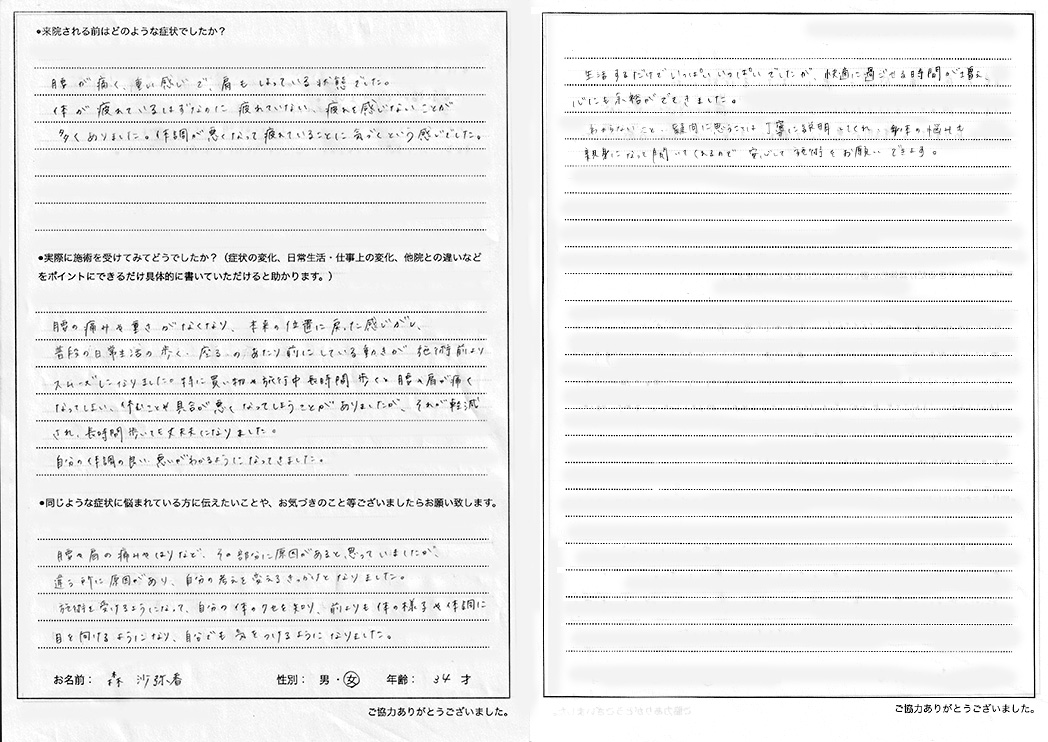 ●来院される前はどのような症状でしたか？
腰が痛く、重い感じで、肩もはっている状態でした。
体が疲れているはずなのに疲れていない、疲れを感じないことが
多くありました。体調が悪くなって疲れていることに気がつくという感じでした。
●実際に施術を受けてみてどうでしたか？（症状の変化、日常生活・仕事上の変化、他院との違いなど
をポイントにできるだけ具体的に書いていただけると助かります。）
腰の痛みや重さがなくなり、本来の位置に戻った感じがし、
普段の日常生活の歩く・座るのあたり前にしている動きが施術前より
スムーズになりました。特に買い物や旅行中長時間歩くと腰や肩が痛く
なってしまい、休むことや具合が悪くなってしまうことがありましたが、それが軽減
され、長時間歩いても大丈夫になりました。
自分の体調の良い悪いがわかるようになってきました。
●同じような症状に悩まれている方に伝えたいことや、お気づきのこと等ございましたらお願い致します。
腰や肩の痛みやはりなど、その部分に原因があると思っていましたが、
違う所に原因があり、自分の考えを変えるきっかけとなりました。
施術を受けるようになって、自分の体のクセを知り、前よりも体の様子や体調に
目を向けるようになり、自分でも気をつけるようになりました。
お名前： 森 沙弥香 性別： 男・女 年齢： 34 才
ご協力ありがとうございました。
生活するだけでいっぱいいっぱいでしたが、快適に過ごせる時間が増え、
心にも余裕ができました。
わからないこと、疑問に思うことは丁寧に説明してくれ、身体の悩みも
親身になって聞いてくれるので安心して施術をお願いできます。
ご協力ありがとうございました。